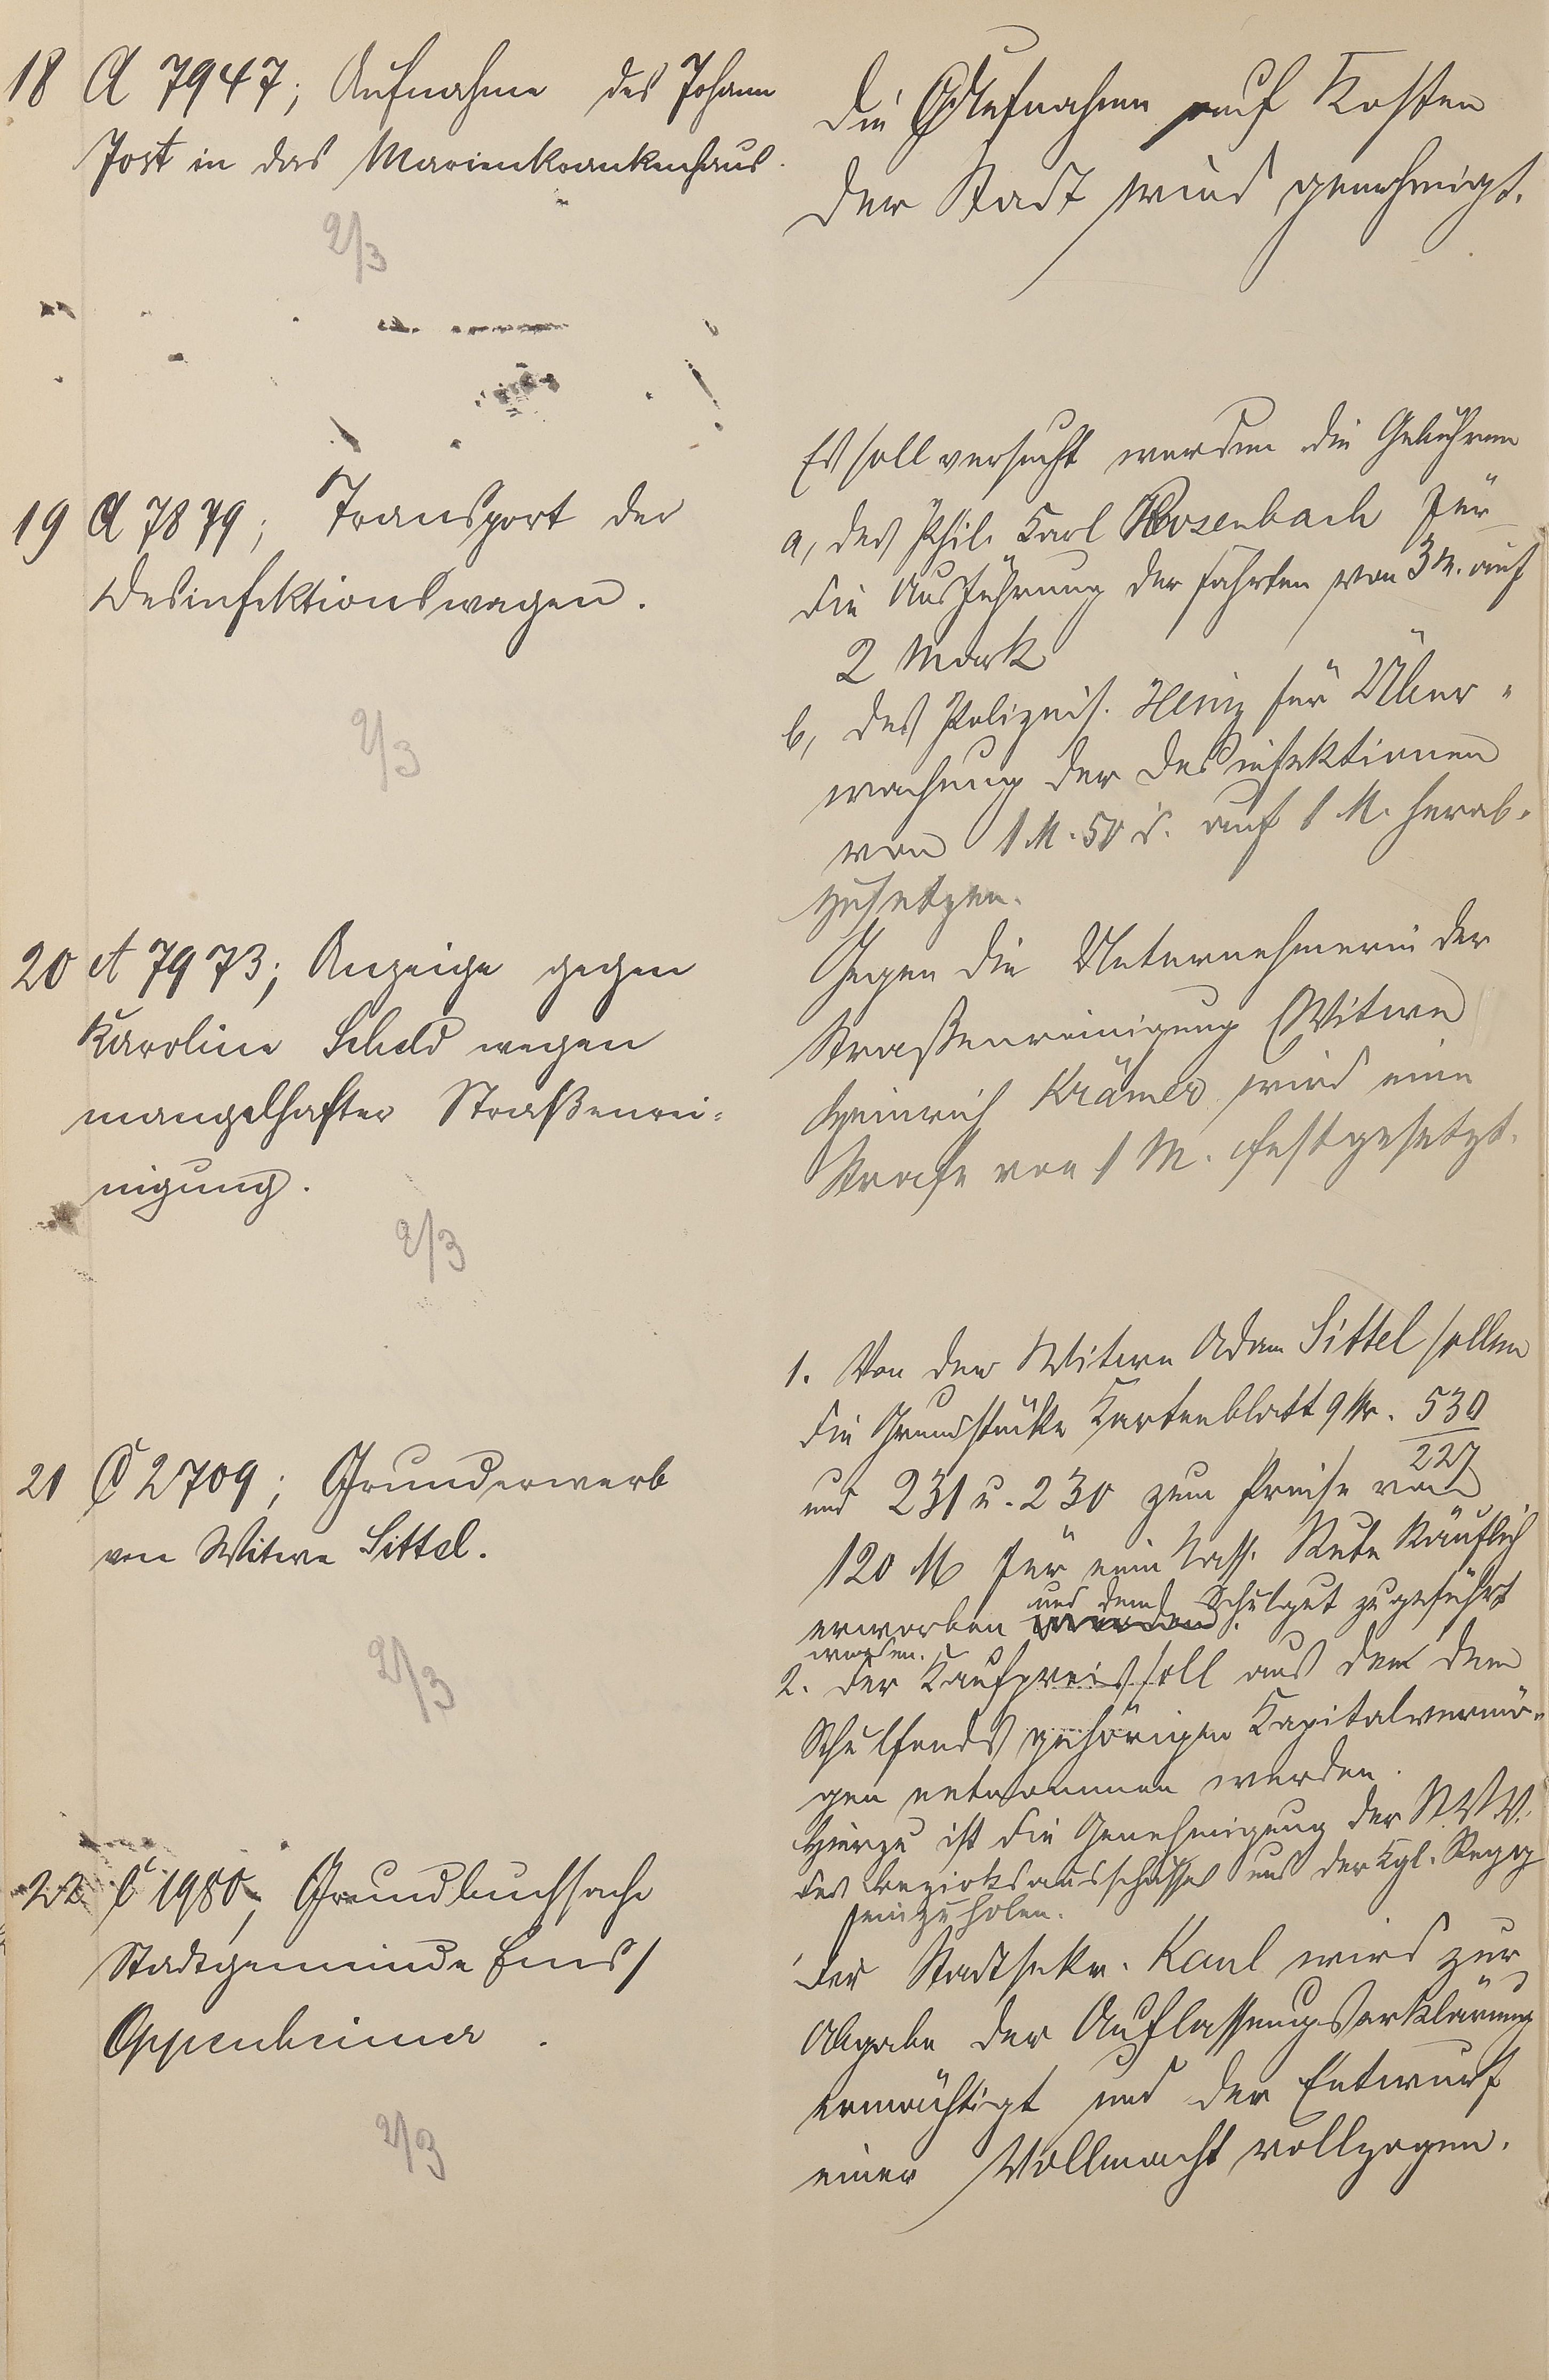 18 A 7947; Aufnahme des Johann
Jost in das Marienkrankenhaus.
2/3
Die Aufnahme auf Kosten
der Stadt wird genehmigt.
19 A 7879; Transport der
Desinfektionswagen.
2/3
Es soll versucht werden die Gebühren
a, des Phil. Karl Rosenbach für
die Ausführung der Fahrten von 3 M. auf
2 Mark
b, des Polizeis. Heinz für Über-
wachung der Desinfektionen
von 1 M. 50 d. auf 1 M. herab-
zusetzen.
20 A 7973; Anzeige gegen
Karoline Scheld wegen
mangelhafter Straßenrei-
nigung.
2/3
Gegen die Unternehmerin der
Straßenreinigung Witwe
Heinrich Krämer wird eine
Strafe von 1 M. festgesetzt.
21 C 2709; Grunderwerb
von Witwe Sittel.
2/3
1. Von der Witwe Adam Sittel sollen
die Grundstücke Kartenblatt 9 Nr. 530
227
und 231 u. 230 zum Preise von
120 M für eine Nass. Rute käuflich
und dem Schulgut zugeführt
erworben werden.
werden.
2. Der Kaufpreis soll aus dem dem
Schulfonds gehörigen Kapitalvermö-
gen entnommen werden.
Hierzu ist die Genehmigung der St. V. V.
des Bezirksausschusses und der Kgl. Regg
einzuholen.
22 C 1980; Grundbuchsache
Stadtgemeinde Ems/
Oppenheimer.
2/3
Der Stadtsekr. Kaul wird zur
Abgabe der Auflassungserklärung
ermächtigt und der Entwurf
einer Vollmacht vollzogen.